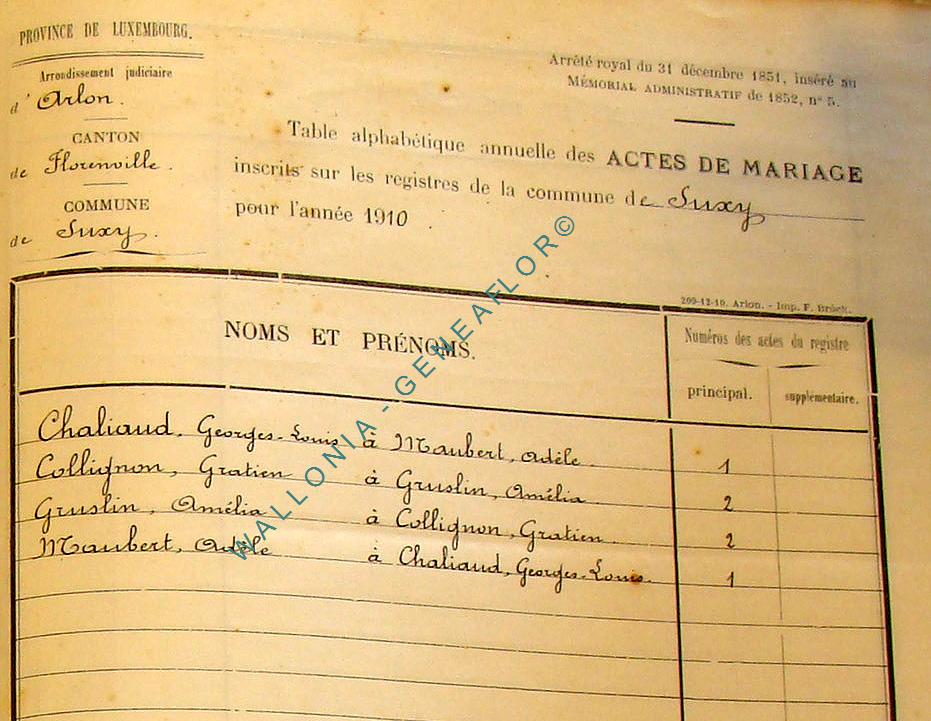 PROVINCE DE LUXEMBOURG.
Arrondissement judiciaire
d'Arlon.
CANTON
de Florenville.
COMMUNE
de Suxy.
Arrêté royal du 31 décembre 1851, inséré au
MÉMORIAL ADMINISTRATIF de 1852, n° 5.
Table alphabétique annuelle des ACTES DE MARIAGE
inscrits sur les registres de la commune de Suxy
pour l'année 1910
209-12-10. Arlon. - Imp. F. Brück.
NOMS ET PRÉNOMS.
Numéros des actes du registre
principal.
supplémentaire.
Chaliaud, Georges-Louis à Maubert, Adèle. 1
Collignon, Gratien à Gruslin, Amélia 2
Gruslin, Amélia à Collignon, Gratien. 2
Maubert, Adèle à Chaliaud, Georges-Louis. 1
WALLONIA - GENEAFLOR©